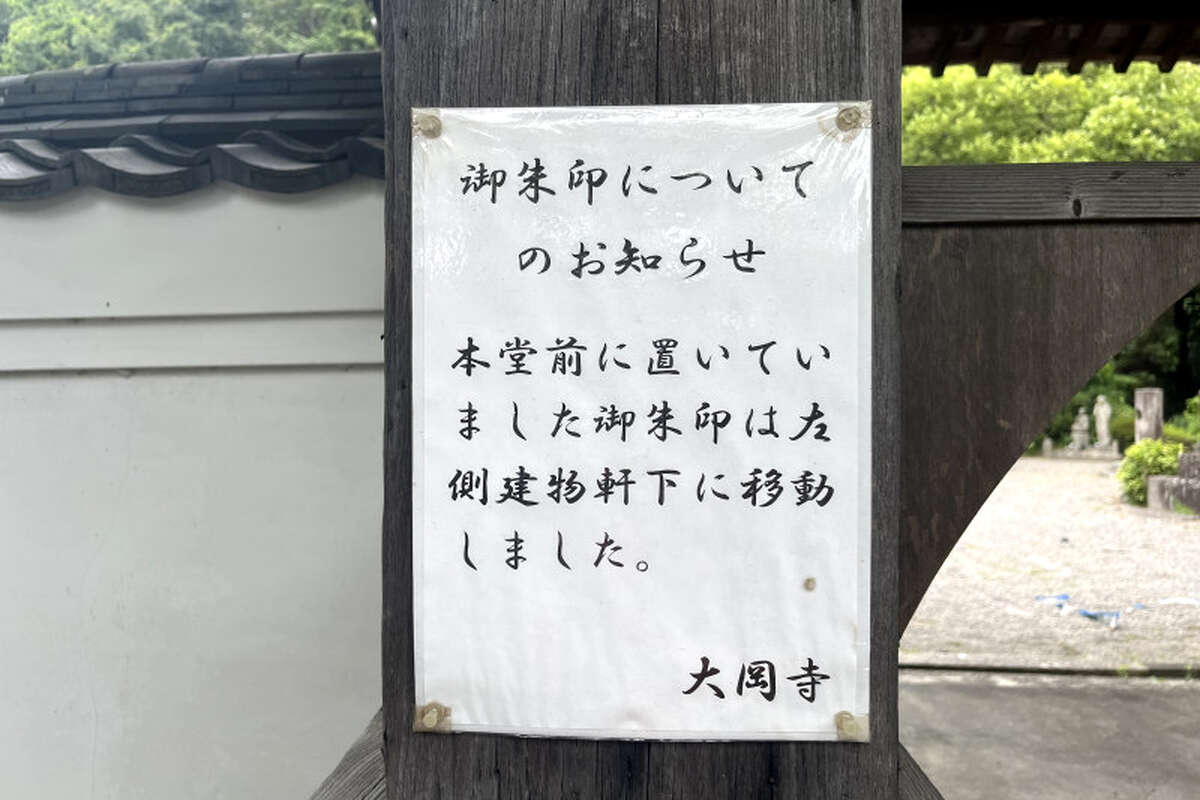 御朱印について
のお知らせ
本堂前に置いてい
ました御朱印は左
側建物軒下に移動
しました。
大岡寺